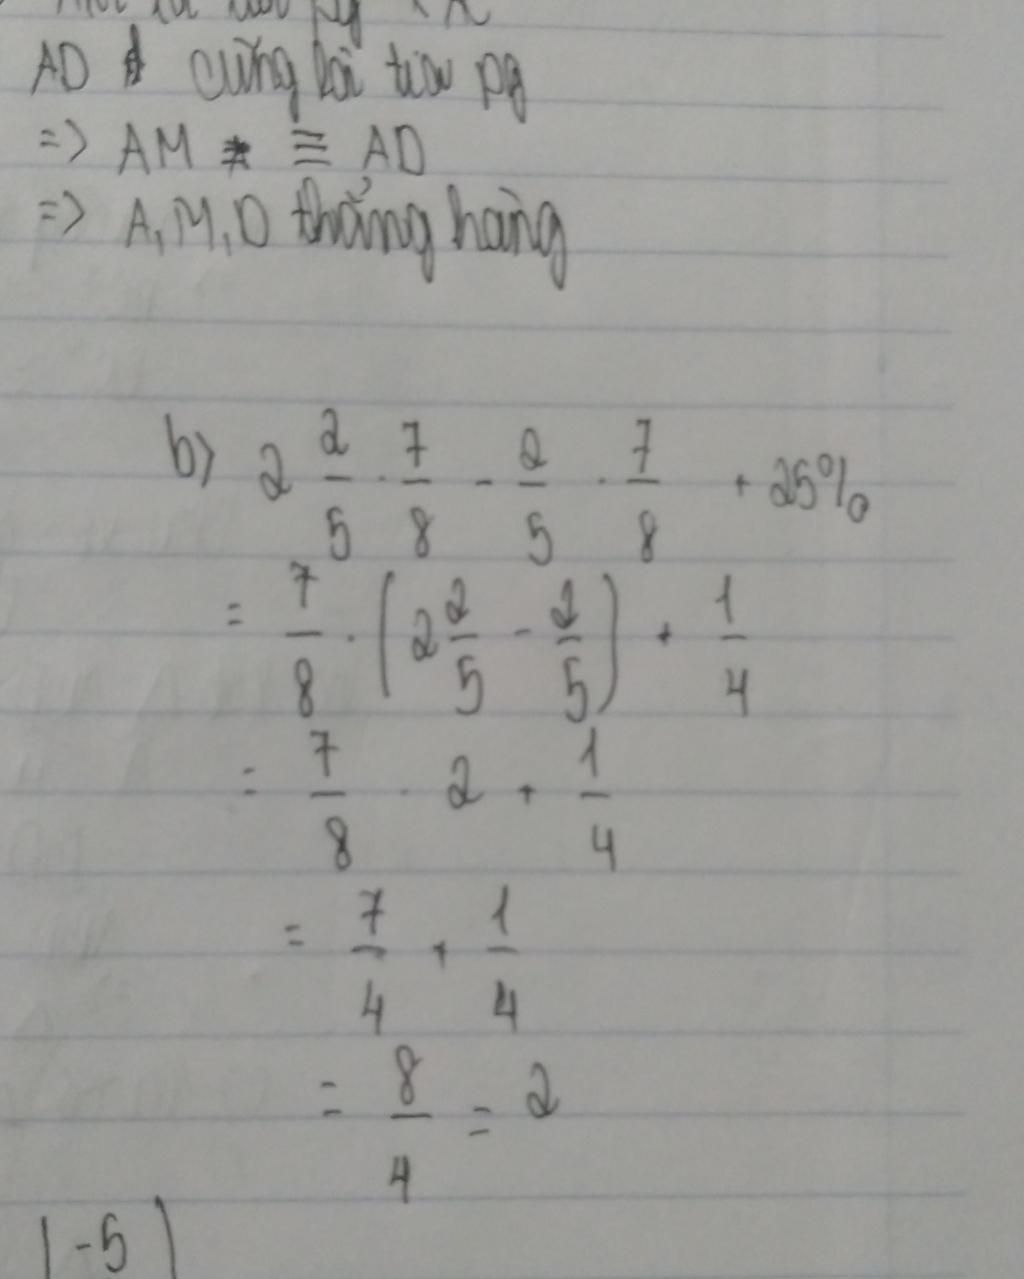 AD cũng là tia pg
=> AM ≡ AD
=> A, M, D thẳng hàng
b) 2 2/5 . 7/8 - 2/5 . 7/8 + 25%
= 7/8 . (2 2/5 - 2/5) + 1/4
= 7/8 . 2 + 1/4
= 7/4 + 1/4
= 8/4 = 2
|-5|